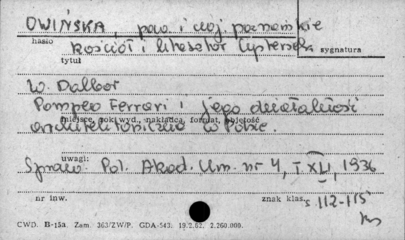 OWIŃSKA, pow. i woj. poznańskie
hasło
kościół i klasztor Cystersek
sygnatura
tytuł
W. Dalbor
Pompeo Ferrari i jego działalność
miejsce, rok wyd., nakładca, format, objętość
architektoniczna w Polsce.
uwagi:
Spraw. Pol. Akad. Um. nr 4, T XLI, 1936
nr inw. znak klas. s 112-115
CWD. B-15a. Zam. 365/ZW/P. GDA-543. 19.2.82. 2.260.000.